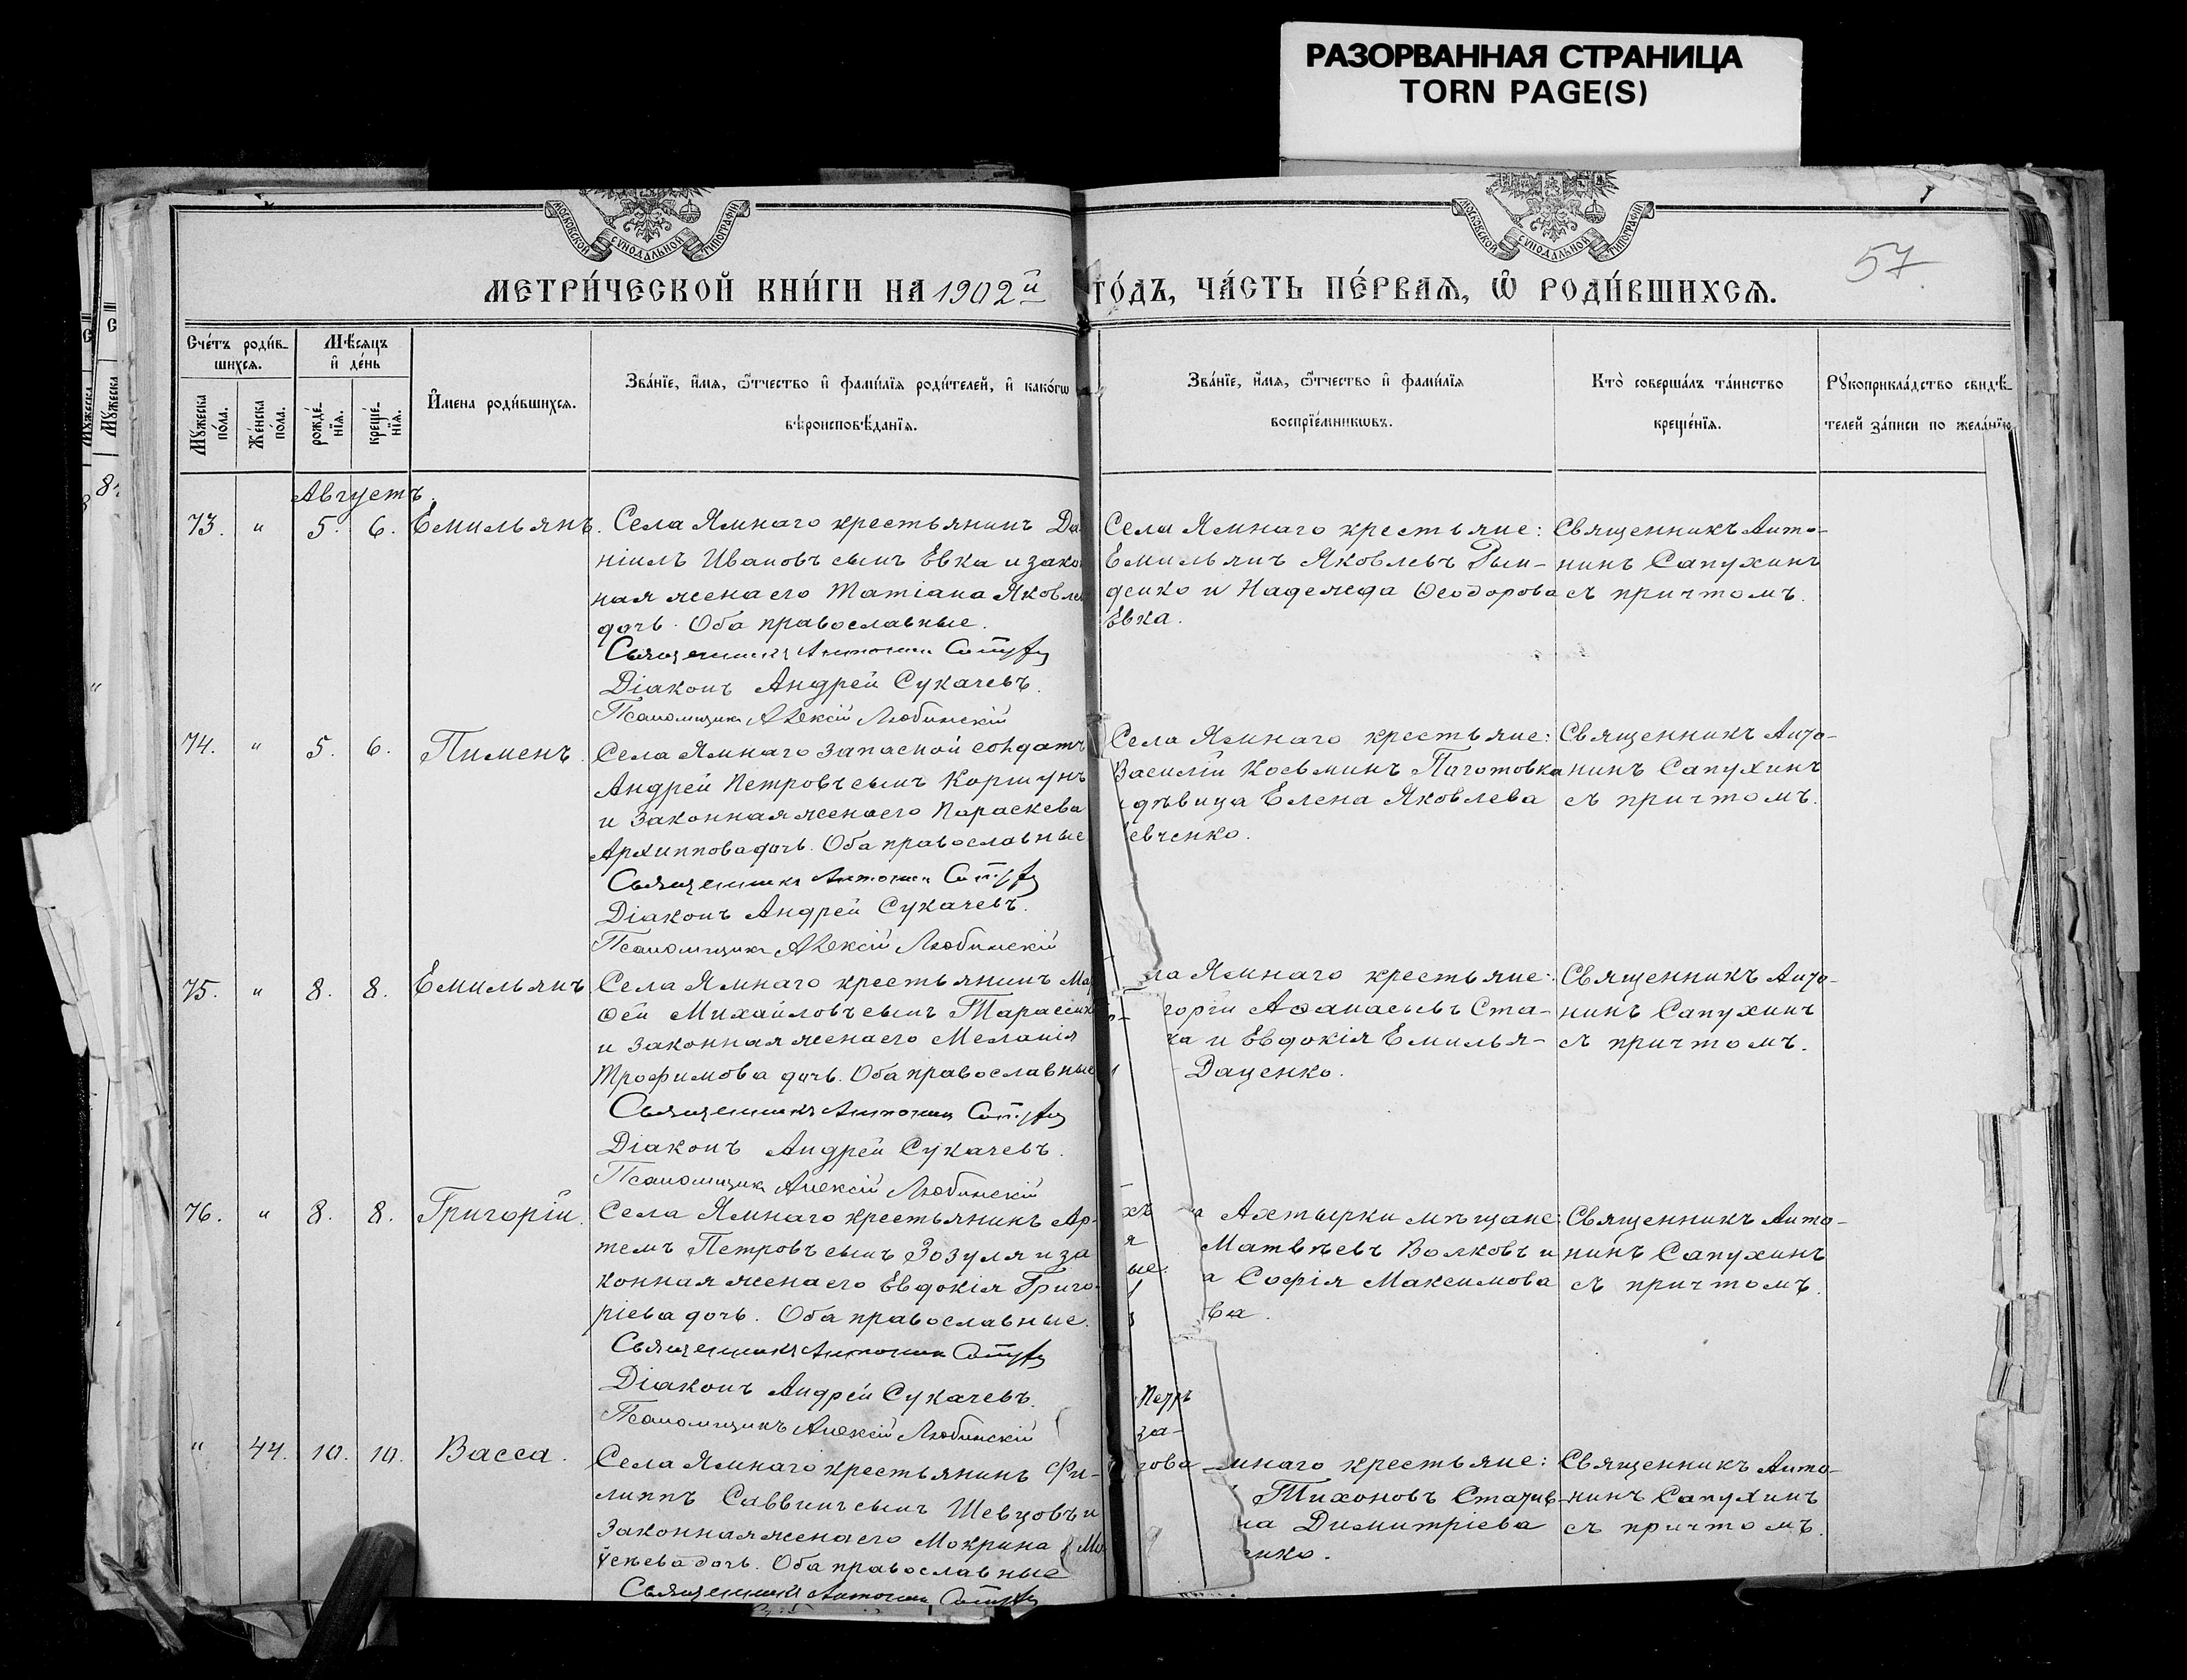 РАЗОРВАННАЯ СТРАНИЦА
TORN PAGE(S)
МОСКОВСКОЙ СѴНОДАЛЬНОЙ ТИПОГРАФІИ
МОСКОВСКОЙ СѴНОДАЛЬНОЙ ТИПОГРАФІИ
57
МЕТРИ́ЧЕСКОЙ КНИ́ГИ НА 1902й
ГО́ДЪ, ЧА́СТЬ ПЕ́РВАЯ, Ѿ РОДИ́ВШИХСЯ.
Сче́тъ роди́в-
шихся.
Мѣ́сяцъ
и҆ де́нь
Мꙋ́жеска
по́ла.
Же́нска
по́ла.
рожде́-
нїя.
креще́-
нїя.
И҆мена роди́вшихся.
Зва́нїе, и҆́мя, ѻ҆́тчество и҆ фами́лїя роди́телей, и҆ како́гѡ
вѣроисповѣ́данїя.
Зва́нїе, и҆́мя, ѻ҆́тчество и҆ фами́лїя
воспрїе́мникѡвъ.
Кто̀ соверша́лъ та́инство
креще́нїя.
Рꙋкоприкла́дство свидѣ́-
телей за́писи по жела́нїю
Августъ.
73. " 5. 6. Емильянъ.
Села Ямнаго крестьянинъ Да
ніилъ Ивановъ сынъ Евка и зако
ная жена его Татіана Яковле
дочь. Оба православные.
Священникъ Антонин
Діаконъ Андрей Сукачевъ.
Псаломщикъ Алексій Любинскій
Села Ямнаго крестьяне:
Емильянъ Яковлевъ Рын-
денко и Надежда Ѳеодорова
Евка.
Священникъ Анто-
нинъ Сапухинъ
съ причтомъ.
74. " 5. 6. Пименъ.
Села Ямнаго запасной солдатъ
Андрей Петровъ сынъ Коршунъ
и законная жена его Параскева
Архиппова дочь. Оба православные
Священникъ Антонин
Діаконъ Андрей Сукачевъ.
Псаломщикъ Алексій Любинскій
Села Ямнаго крестьяне:
Василій Косьминъ Паготовка
дѣвица Елена Яковлева
евченко.
Священникъ Анто-
нинъ Сапухинъ
съ причтомъ.
75. " 8. 8. Емильянъ
Села Ямнаго крестьянинъ Ма
ѳей Михайловъ сынъ Тарасенк
и законная жена его Меланія
Трофимова дочь. Оба православные
Священникъ Антонин
Діаконъ Андрей Сукачевъ.
Псаломщикъ Алексій Любинскій
ла Ямнаго крестьяне:
горій Аѳанасьевъ Ста-
ка и Евдокія Емилья-
Даценко.
Священникъ Анто-
нинъ Сапухинъ
съ причтомъ.
76. " 8. 8. Григорій.
Села Ямнаго крестьянинъ Ар-
темъ Петровъ сынъ Зозуля и за
конная жена его Евдокія Григо-
ріева дочь. Оба православные.
Священникъ Антонин
Діаконъ Андрей Сукачевъ.
Псаломщикъ Алексій Любинскій
хъ
я
ые.
а Ахтырки мѣщане:
Матвѣевъ Волковъ и
а Софія Максимова
ва.
Священникъ Анто-
нинъ Сапухинъ
съ причтомъ.
Петръ
за-
гова
" 44. 10. 10. Васса.
Села Ямнаго крестьянинъ Фи-
липпъ Саввинъ сынъ Шевцовъ и
законная жена его Мокрина Мо
ѵсеева дочь. Оба православные
Священникъ Антонин
мнаго крестьяне:
Тихоновъ Статив-
на Димитріева
енко.
Священникъ Анто-
нинъ Сапухинъ
съ причтомъ.